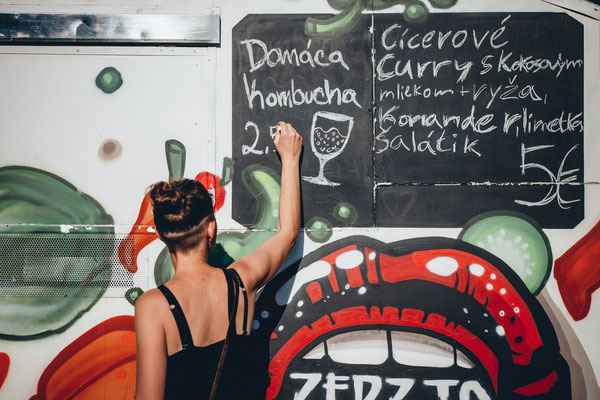 Domáca
Kombucha
2.
Cícerové
Curry s Kokosovým
mliekom + ryža,
Koriander limetka
šalátik
5€
ZEDZ TO